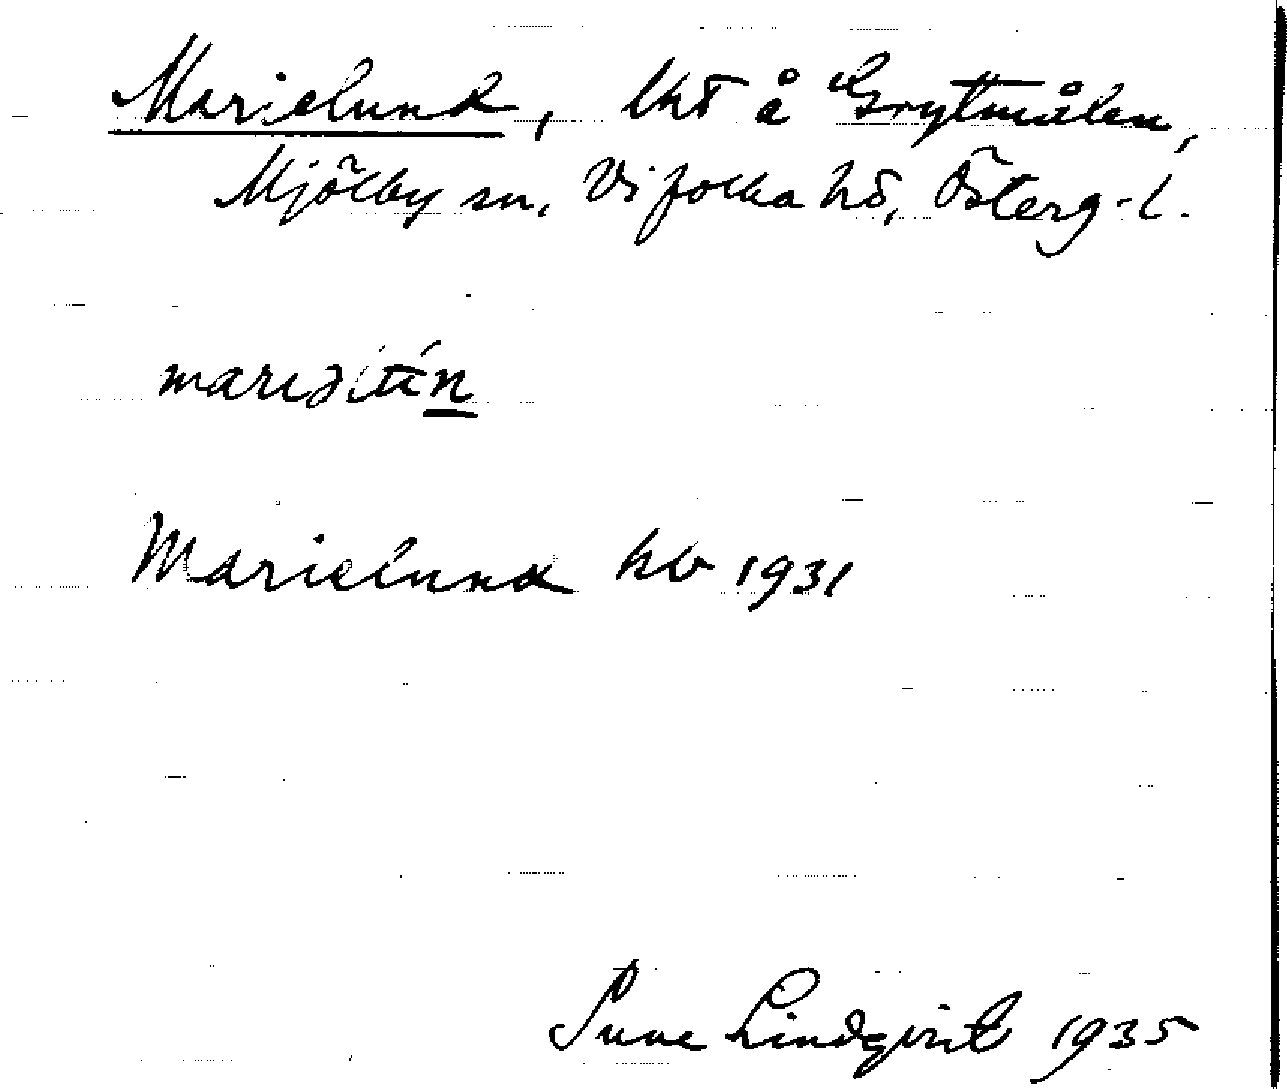 Marielund, lht å Grytmålen,
Mjölby sn, Vifolka hd, Österg. l.
Marielund kb 1931
Sune Lindqvist 1935